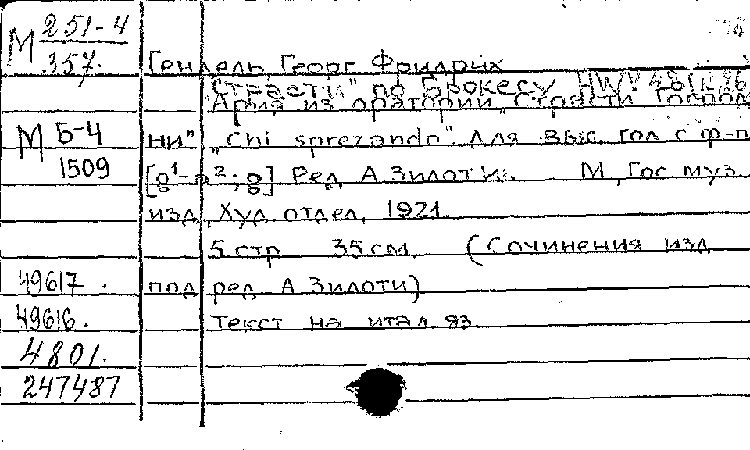 М 251-4
357.
Гендель, Георг Фридрих
"Страсти" по Брокесу HWV 48
Ария из оратории "Страсти Господ
М Б-4
1509
ни" "Chi sprezando". Для выс. гол. с ф-п
Ред. А. Зилоти. М., Гос. муз.
изд. Худ. отдел, 1921.
5 стр. 35 см. (Сочинения изд.
49617.
под ред. А. Зилоти)
49616.
Текст на итал. яз.
4801.
247487